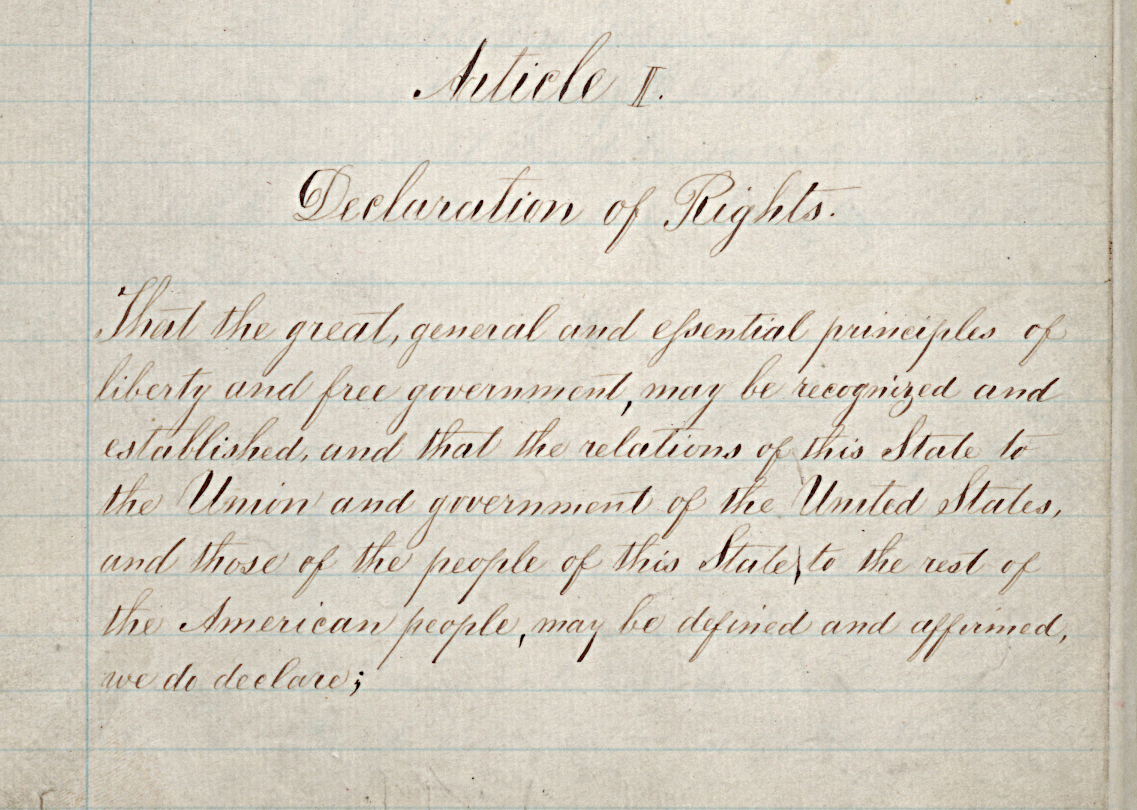 Article II.
Declaration of Rights.
That the great, general and essential principles of
liberty and free government, may be recognized and
established, and that the relations of this State to
the Union and government of the United States,
and those of the people of this State to the rest of
the American people, may be defined and affirmed,
we do declare;